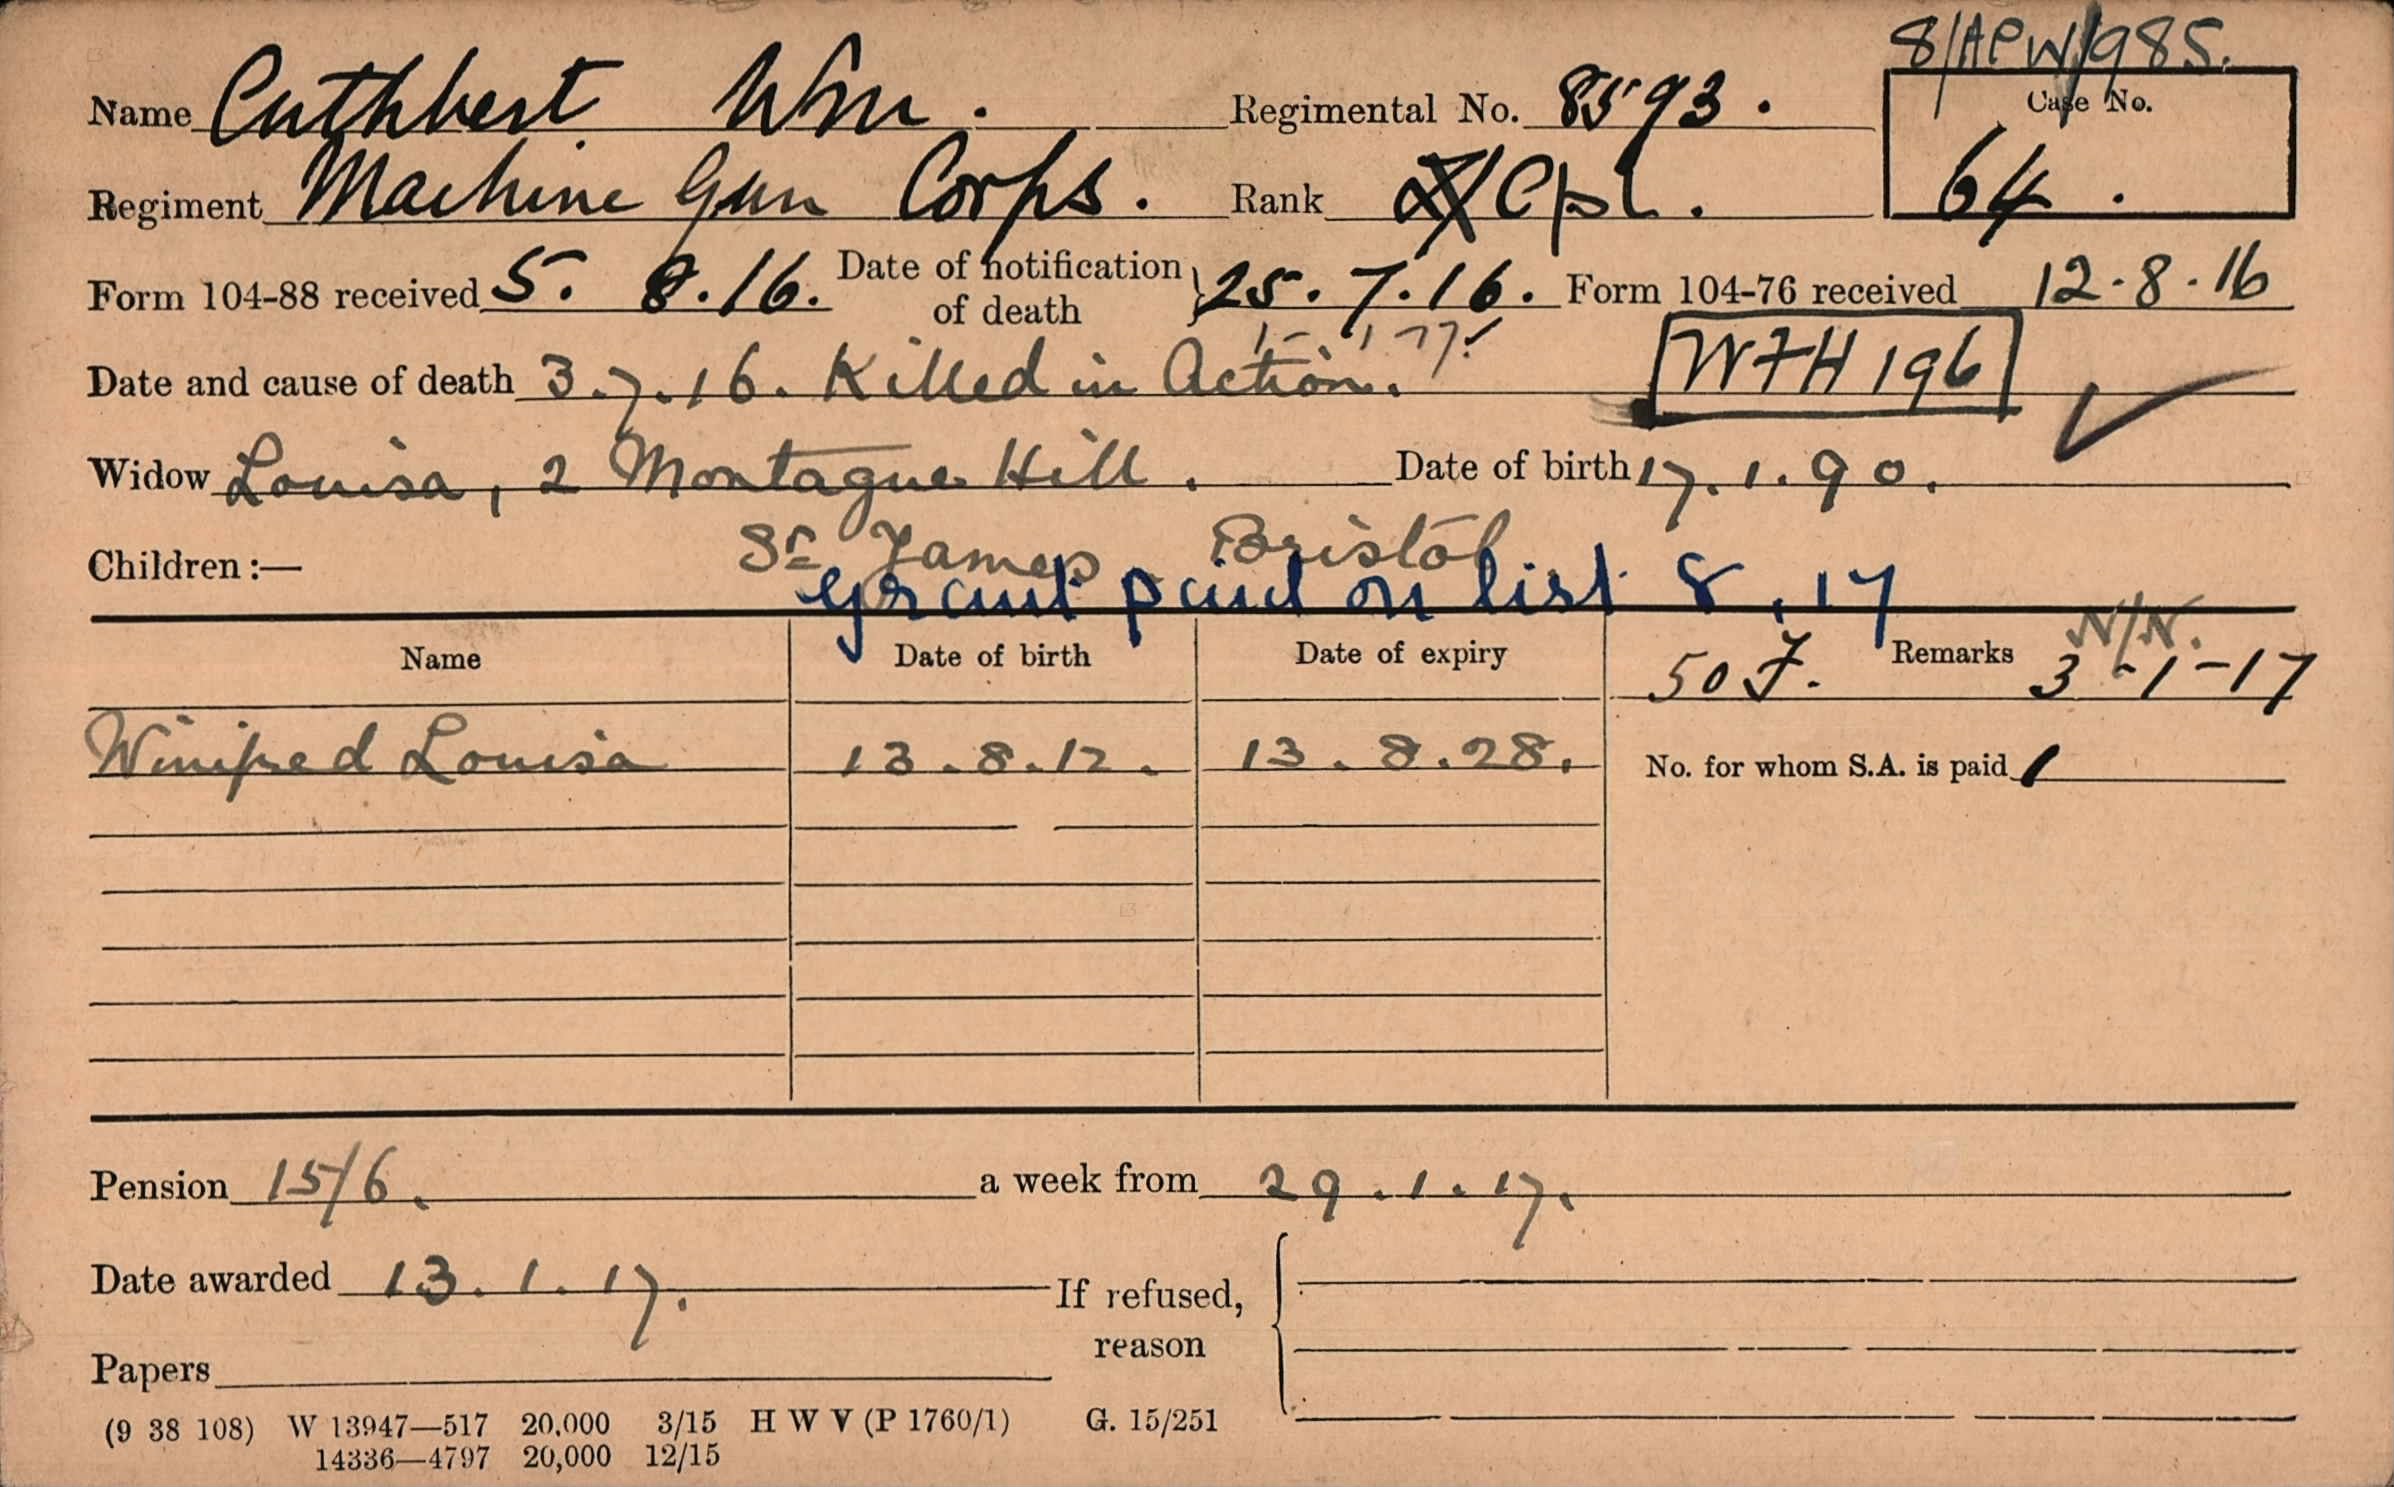 8/APW/985.
Name Cuthbert Wm. Regimental No. 8593. Case No.
Regiment Machine Gun Corps. Rank L/Cpl. 64.
Form 104-88 received 5. 8.16. Date of notification of death } 25.7.16. Form 104-76 received 12.8.16
Date and cause of death 3.7.16. Killed in Action. WFH 196
Widow Louisa, 2 Montague Hill. Date of birth 17.1.90.
Children :— St James Bristol
grant paid on list 8.17
N/N.
Name Date of birth Date of expiry 50 F. Remarks 3-1-17
Winifred Louisa 13.8.12. 13.8.28. No. for whom S.A. is paid 1
Pension 15/6. a week from 29.1.17.
Date awarded 13.1.17. If refused,
reason
Papers
(9 38 108) W 13947—517 20,000 3/15 H W V (P 1760/1) G. 15/251
14336—4797 20,000 12/15